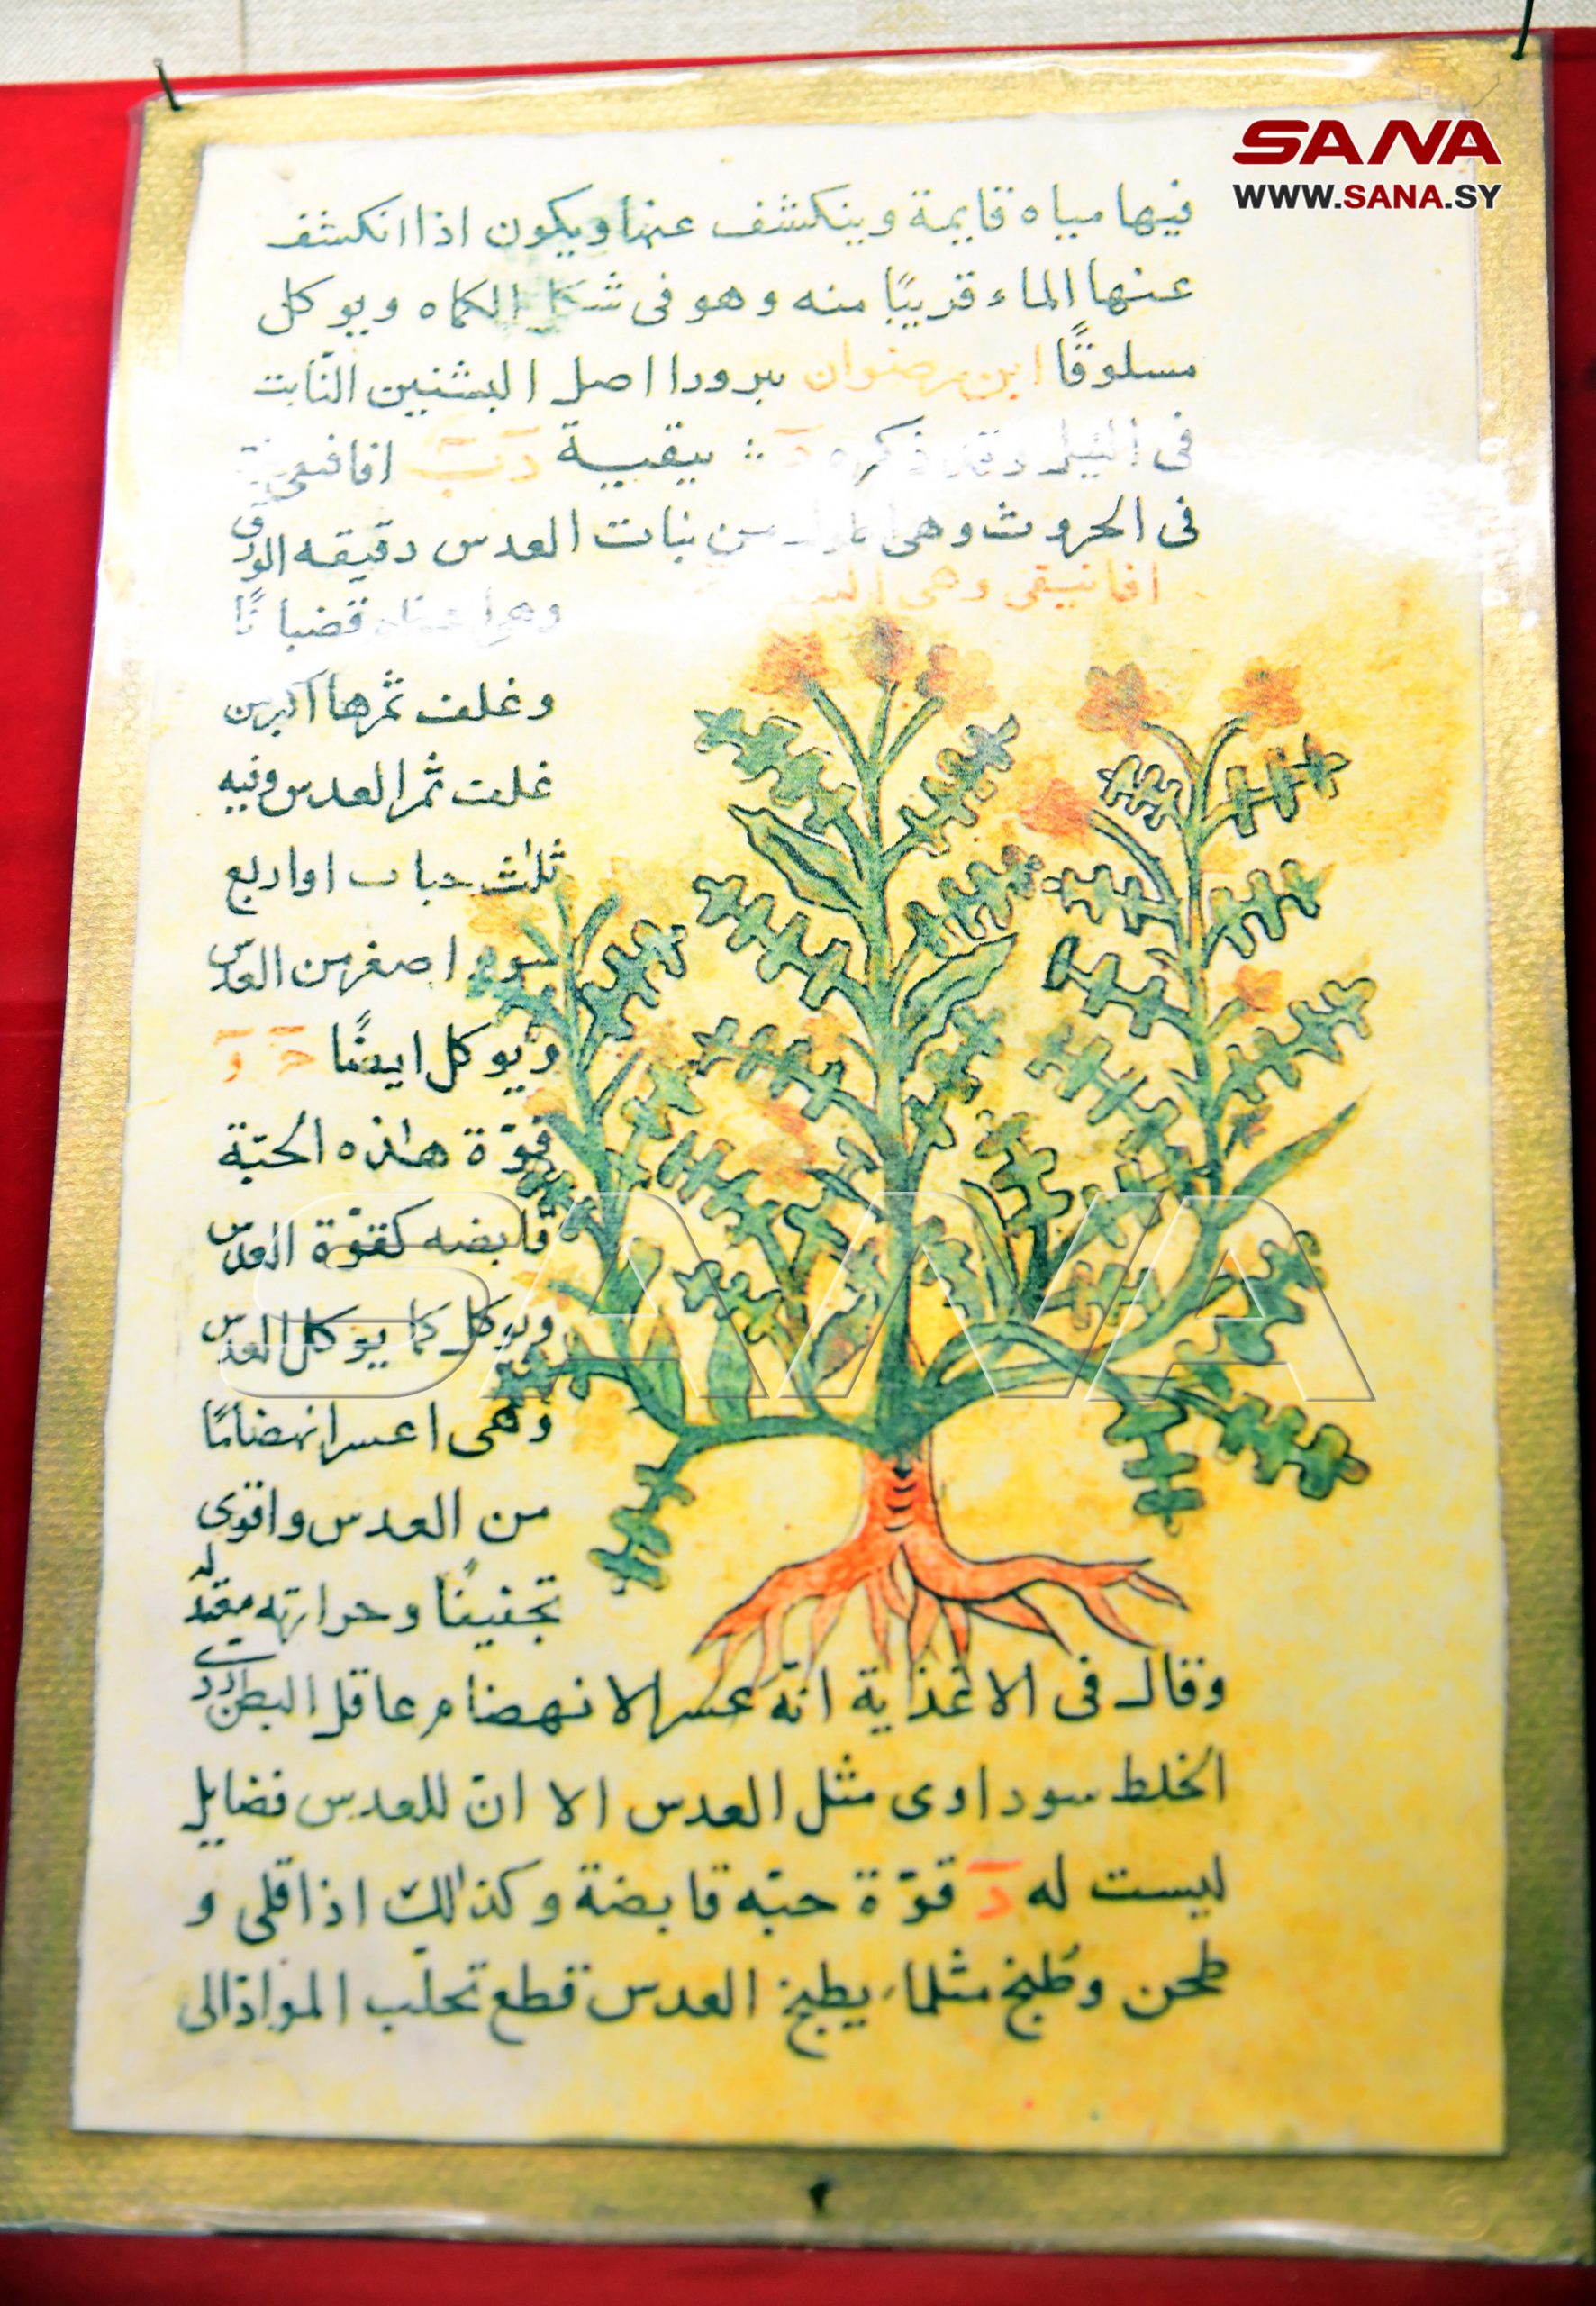 SANA
WWW.SANA.SY
فيها مياه قايمة وينكشف عنها ويكون اذا انكشف
عنها الماء قريبًا منه وهو فى شكل الكماه ويوكل
مسلوقًا ابن رضوان بيرودا اصل البشنين النّابت
فى النيل وقد ذكره دَ بيقيية دَ بَ افاقى
فى الحروث وهى اطول من نبات العدس دقيقه الورق
افانيقى وهى
وهى قضبانًا
وغلف ثمرها اكبر من
غلف ثمر العدس وفيه
ثلث حبات او اربع
اصغر من العدس
ويوكل ايضًا حَ وَ
قوّة هاذه الحبّة
قابضه كقوّة العدس
ويوكل كما يوكل العدس
وهى اعسر انهضامًا
من العدس واقوى
تجفيفًا وحرارته معتدلة
وقال فى الاغذية انّه عسر الانهضام عاقل البطن ردى
الخلط سوداوى مثل العدس الا انّ للعدس فضايل
ليست له دَ قوّة حبّه قابضة وكذلك اذا قلى و
طحن وطُبخ مثلما يطبخ العدس قطع تحلّب الموادّ الى
SANA